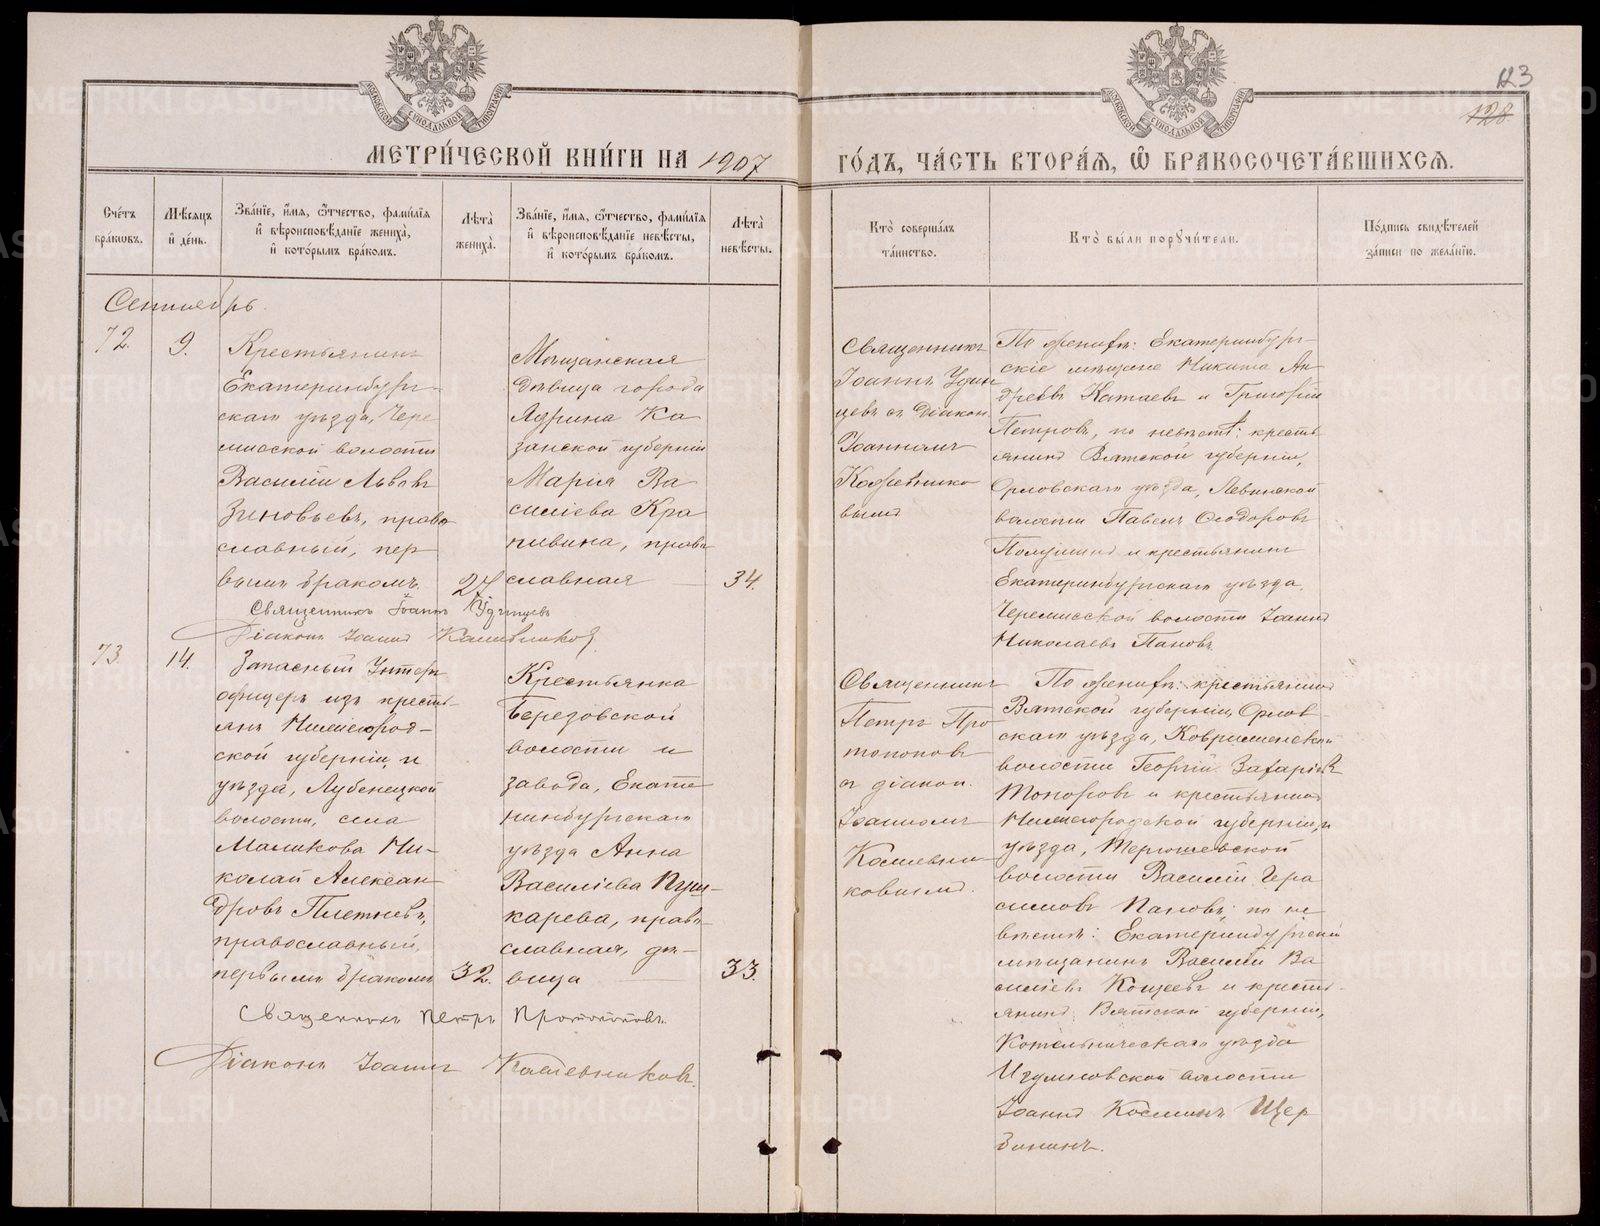 123
128
МЕТРИ́ЧЕСКОЙ КНИ́ГИ НА 1907 ГО́ДЪ, ЧА́СТЬ ВТОРА́Я, Ѿ БРАКОСОЧЕТА́ВШИХСЯ.
Сче́тъ бра́кωвъ.
Мѣ́сяцъ и҆ де́нь.
Зва́нїе, и҆́мя, ѻ҆́тчество, фами́лїя
и҆ вѣроисповѣ́данїе жениха̀,
и҆ кото́рымъ бра́комъ.
Лѣ́та̀ жениха̀.
Зва́нїе, и҆́мя, ѻ҆́тчество, фами́лїя
и҆ вѣроисповѣ́данїе невѣ́сты,
и҆ кото́рымъ бра́комъ.
Лѣ́та̀ невѣ́сты.
Кто̀ соверша́лъ
та́инство.
Кто̀ бы́ли порꙋчи́тели.
По́дпись свидѣ́телей
за́писи по жела́нїю.
Сентябрь.
72.
9.
Крестьянинъ
Екатеринбург-
скаго уѣзда, Чере
мисской волости
Василій Львовъ
Зиновьевъ, право
славный, пер
вымъ бракомъ.
27
Мѣщанская
дѣвица города
Ядрина Ка
занской губерніи
Марія Ва
силіева Кра
пивина, право
славная
34.
Священникъ
Іоаннъ Удин
цевъ съ діакон.
Іоанномъ
Кожевнико
вымъ
По женихѣ: Екатеринбург-
скіе мѣщане Никита Ан
дреевъ Катаевъ и Григорій
Петровъ, по невѣстѣ: кресть
янинъ Вятской губерніи,
Орловскаго уѣзда, Левинской
волости Павелъ Ѳеодоровъ
и крестьянинъ
Екатеринбургскаго уѣзда
Черемисской волости Іоаннъ
Николаевъ Пановъ.
Священникъ Іоаннъ Удинцевъ
Діаконъ Іоаннъ Кожевниковъ.
73.
14.
Запасный Унтеръ
офицеръ изъ кресть-
янъ Нижегород-
ской губерніи, и
уѣзда, Лубенецкой
волости, села
Маликова Ни-
колай Алексан
дровъ Плетневъ,
православный,
первымъ бракомъ
32.
Крестьянка
Березовской
волости и
завода, Екате
ринбургскаго
уѣзда Анна
Василіева Пуш-
карева, право-
славная, дѣ-
вица
33.
Священникъ
Петръ Про
топоповъ
съ діакон.
Іоанномъ
Кожевни-
ковымъ.
По женихѣ: крестьянинъ
Вятской губерніи, Орлов-
скаго уѣзда, Ковриженской
волости Георгій Захаріевъ
Топоровъ и крестьянинъ
Нижегородской губерніи, и
уѣзда, Терюшевской
волости Василій Гера
симовъ Пановъ; по не
вѣстѣ: Екатеринбургскій
мѣщанинъ Василій Ва
силіевъ Кощеевъ и кресть-
янинъ Вятской губерніи,
Котельническаго уѣзда
Игумновской волости
Іоаннъ Косминъ Щер
бининъ.
Священникъ Петръ Протопоповъ.
Діаконъ Іоаннъ Кожевниковъ.